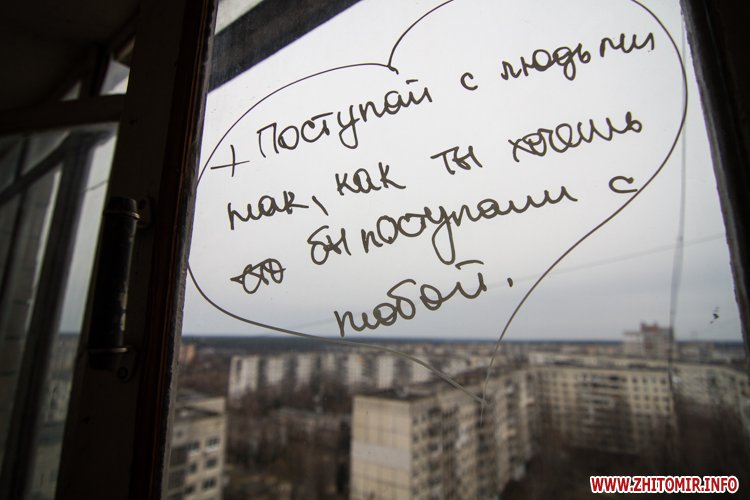 + Поступай с людьми
так, как ты хочешь
что бы поступали с
тобой.
WWW.ZHITOMIR.INFO